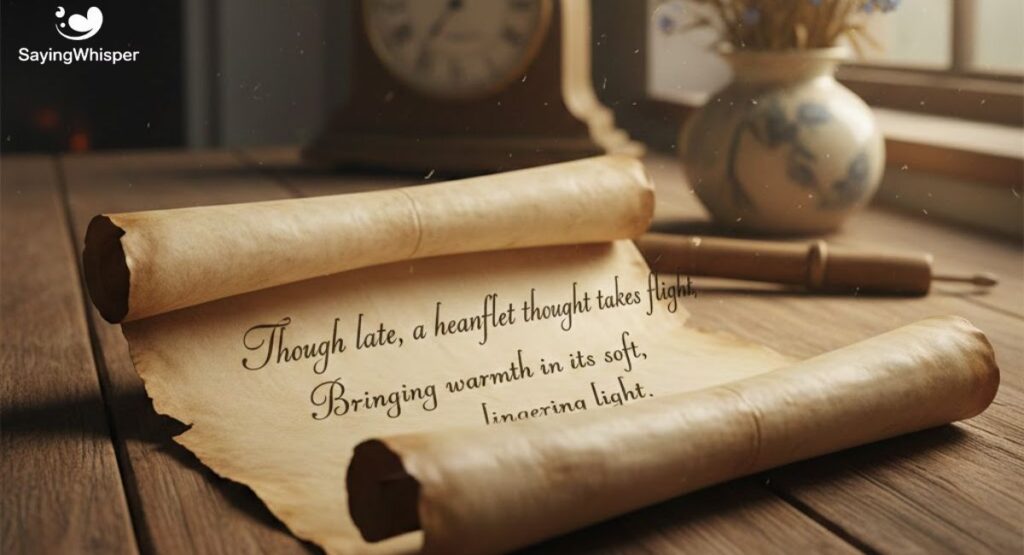 SayingWhisper
Though late, a heanflet thought takes flight,
Bringing warmth in its soft,
lingering light.